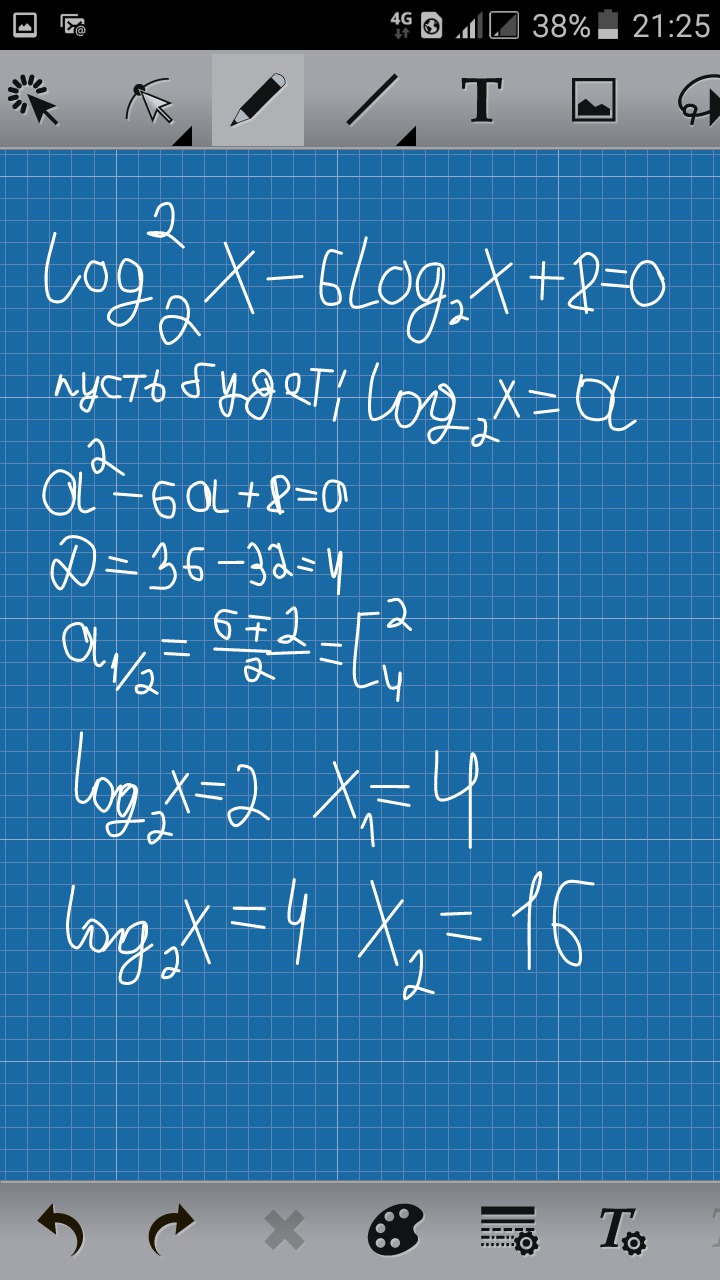 4G 38% 21:25
T
log₂²x-6log₂x+8=0
пусть будет; log₂x=a
a²-6a+8=0
D=36-32=4
a₁/₂=(6∓2)/2=[2 4
log₂x=2 x₁=4
log₂x=4 x₂=16
T